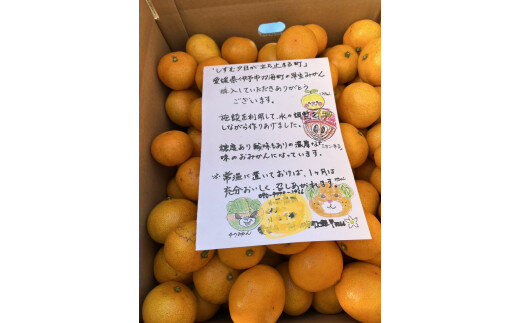 「しずむ夕日が立ち止まる町」
愛媛県伊予市双海町の早生みかん
購入していただきありがとう
ございます。
施設を利用して、水の調整を
しながら作りあげました。
糖度あり酸味もありの濃厚な
味のおみかんになっています。
※常温に置いておけば、1ヶ月は
充分おいしく召しあがれます。